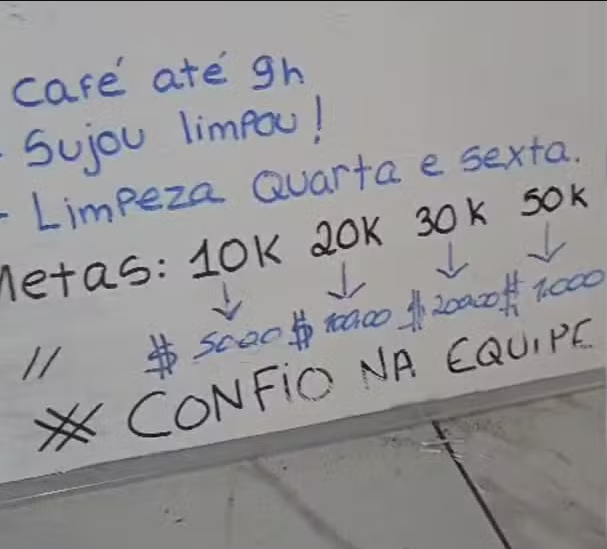 Café até 9h
- Sujou limpou!
- Limpeza Quarta e sexta.
Metas: 10K 20K 30K 50K
// $ 50,00 $ 100,00 $ 200,00 $ 1.000
CONFIO NA EQUIPE